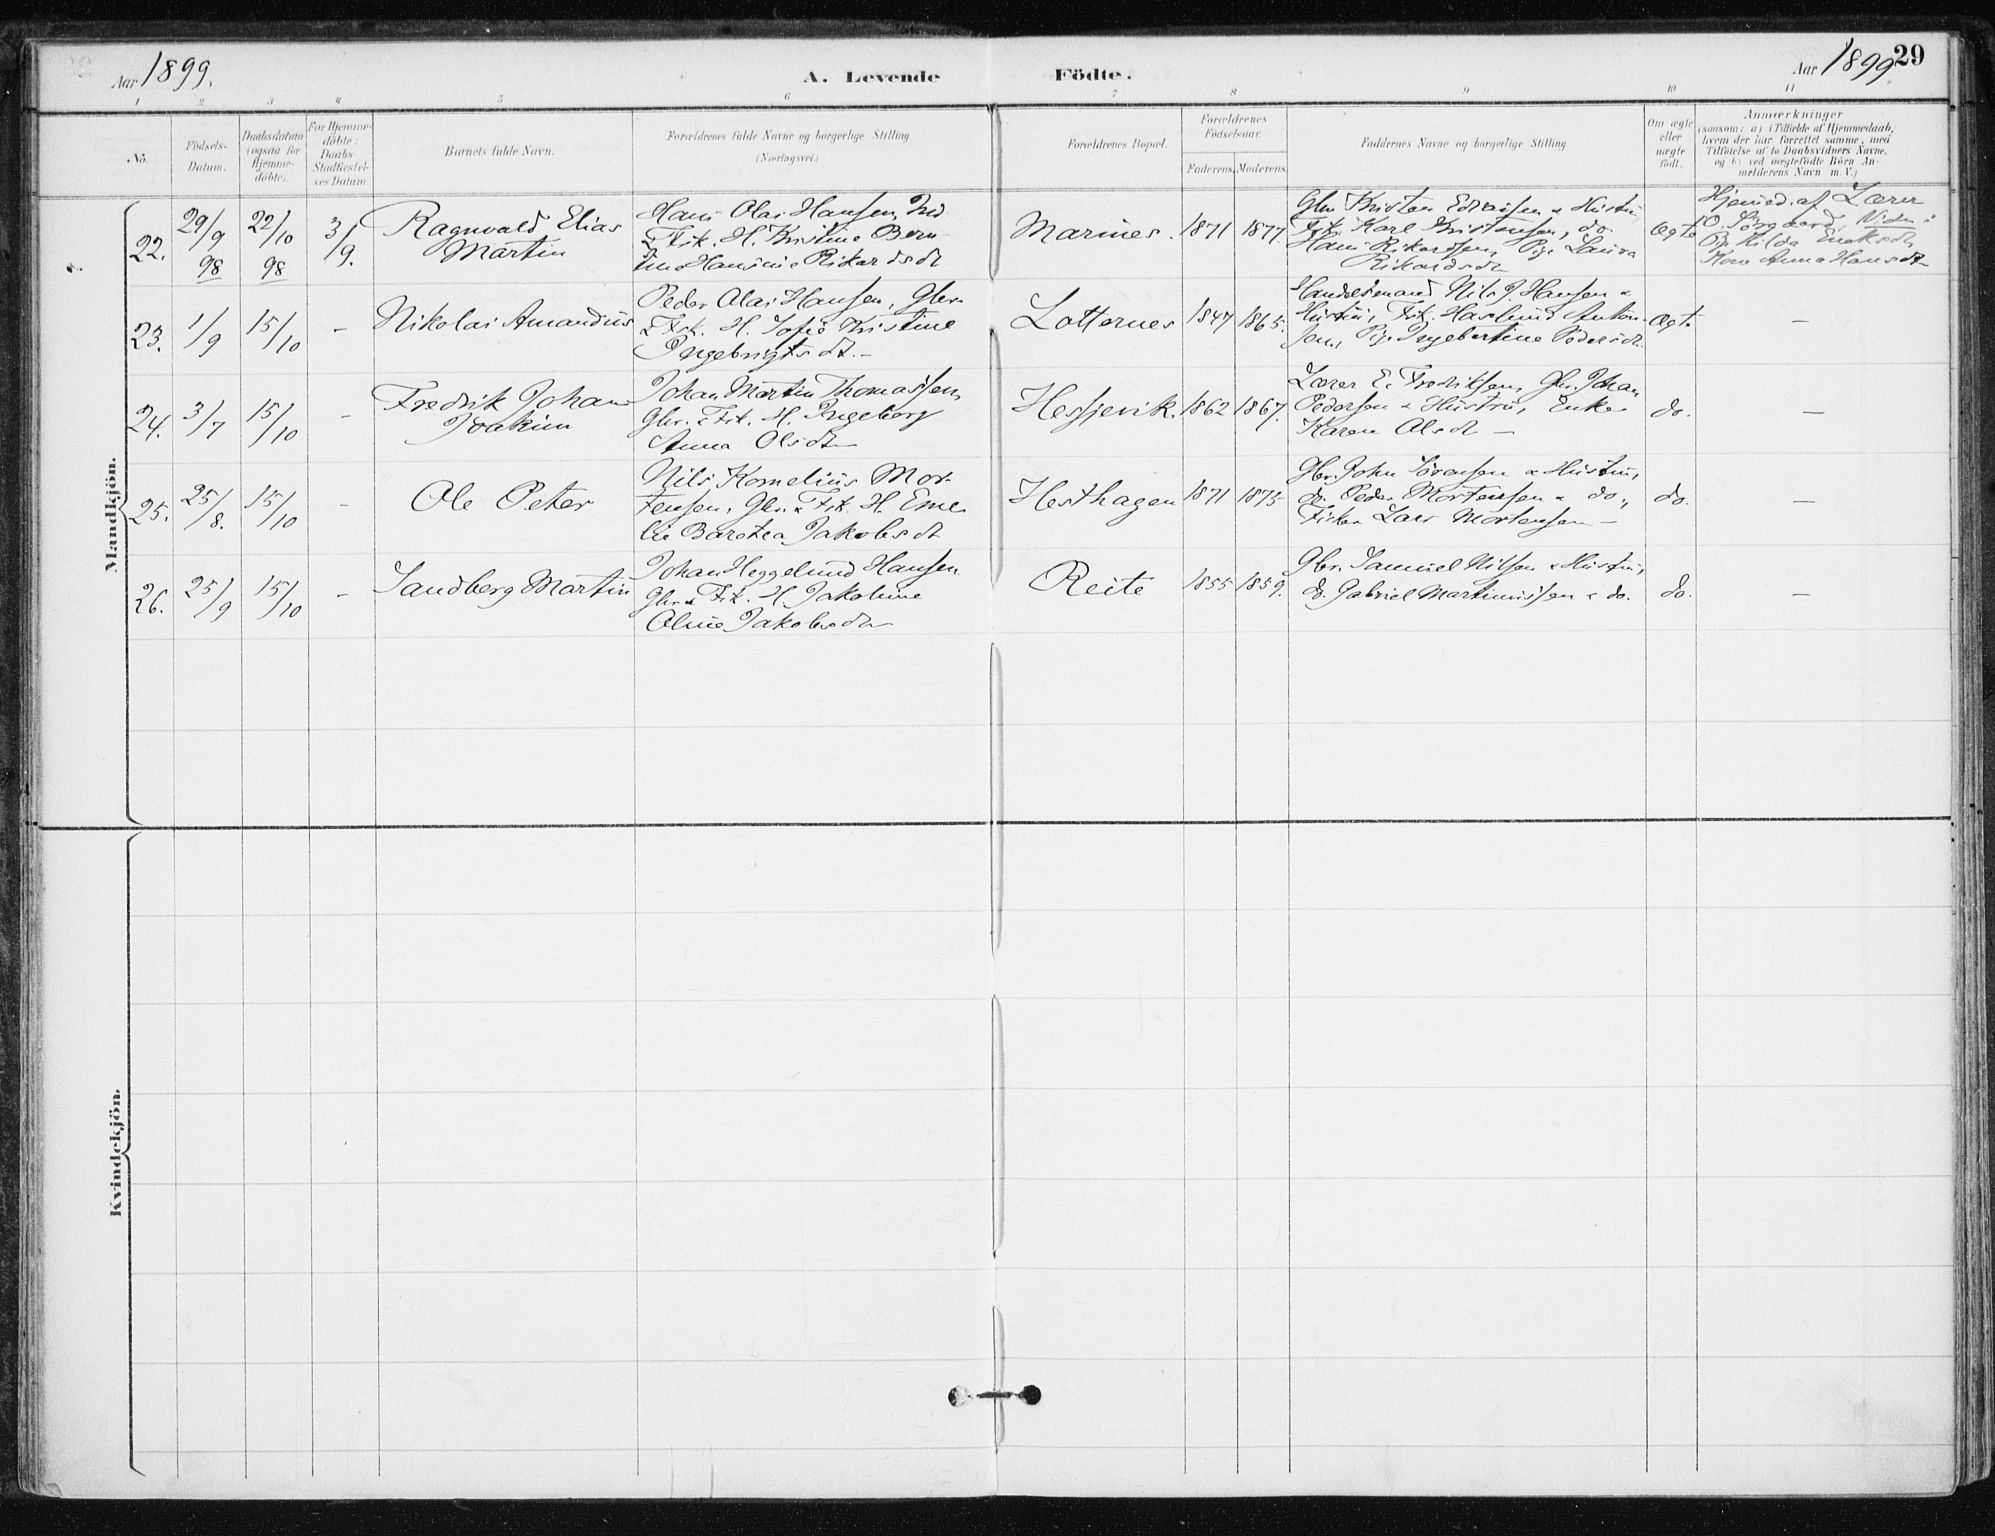 Aar 1899.
A. Levende
Födte.
Aar 1899.
29
1 2 3 4 5 6 7 8 9 10 11
No.
Födsels-
Datum.
Daabsdatum
(ogsaa for
Hjemme-
döbte).
For Hjemme-
döbte:
Daabs-
Stadfæstel-
ses Datum.
Barnets fulde Navn.
Forældrenes fulde Navne og borgerlige Stilling.
(Næringsvei.)
Forældrenes Bopæl.
Forældrenes
Födselsaar.
Faderens. Moderens.
Faddernes Navne og borgerlige Stilling.
Om ægte
eller
uægte
födt.
Anmærkninger
(saasom: a) i Tilfælde af Hjemmedaab,
hvem der har forrettet samme, med
Tilföielse af to Daabsvidners Navne.
og b) ved uægtefödte Börn An-
melderens Navn m. V.)
Mandkjön.
22.
29/9
98
22/10
98
3/9.
Ragnvald Elias
Martin
Hans Olai Hansen, Ind
& Fsk. H. Kristine Bern-
tine Hansine Rikardsdt
Marines.
1871
1877.
Gbr. Kristen Edvardsen & Hustru
Fsk. Karl Kristensen, do
Hans Rikardsen, Pige Laura
Rikardsdt
Ægte
Hjemmed. af Lærer
O. Vidn:
Pige Hilda
Kone Anna Hansdt
23.
1/9
15/10
–
Nikolai Amandus
Peder Olai Hansen, Gbr.
& Fsk. H. Sofie Kristine
Ingebrigtsdt.–
Lotternes
1847
1865.
Handelsmand Nils J. Hansen &
Hustru, Fsk. Haslund Anton-
sen, Pige Ingebertine Pedersdt.
Ægte
–
24.
3/7
15/10
–
Fredrik Johan
Joakim
Johan Martin Thomassen,
Gbr. & Fsk. H. Ingeborg
Anna Olsdt
Hessjevik.
1862
1867.
Lærer E. Fredriksen, Gbr. Johan
Pedersen & Hustru, Enke
Karen Olsdt –
do.
–
25.
25/8.
15/10
–
Ole Peter
Nils Kornelius Mor-
tensen, Gbr. & Fsk. H. Eme-
lie Barotea Jakobsdt
Hesthagen
1871
1875
Gbr. John Sörensen & Hustru,
do. Peder Mortensen & do.,
Fisker Lars Mortensen –
do.
–
26.
25/9
15/10
–
Sandberg Martin
Johan Heggelund Hansen
Gbr. & Fsk. H. Jakobine
Oline Jakobsdt
Reite
1855
1859.
Gbr. Samuel Nilsen & Hustru,
do. Gabriel Martinussen & do.
do.
–
Kvindekjön.